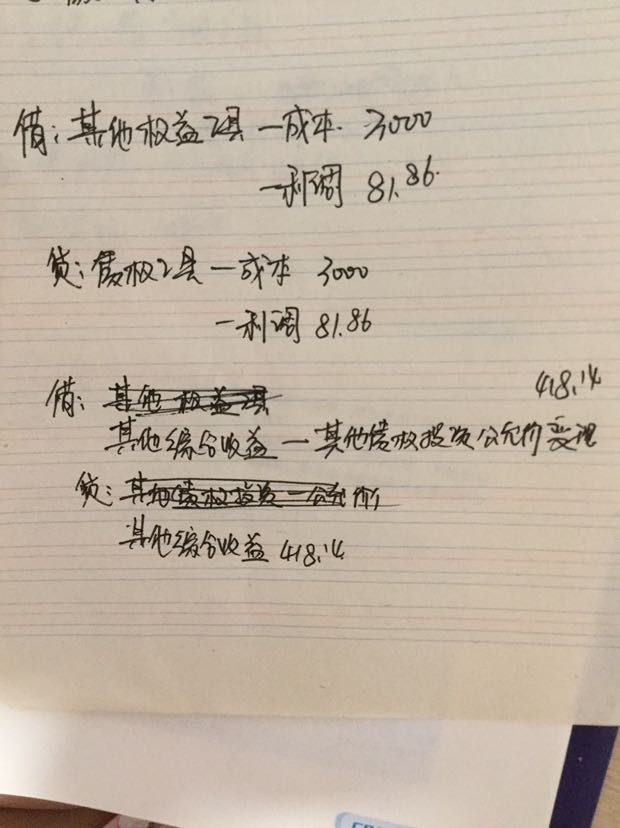 借：其他权益工具 一成本 3000
一利调 81.86
贷：债权工具 一成本 3000
一利调 81.86
借：其他权益工具
418.14
其他综合收益 一其他债权投资公允价变现
贷：其他债权投资一公允价
其他综合收益 418.14